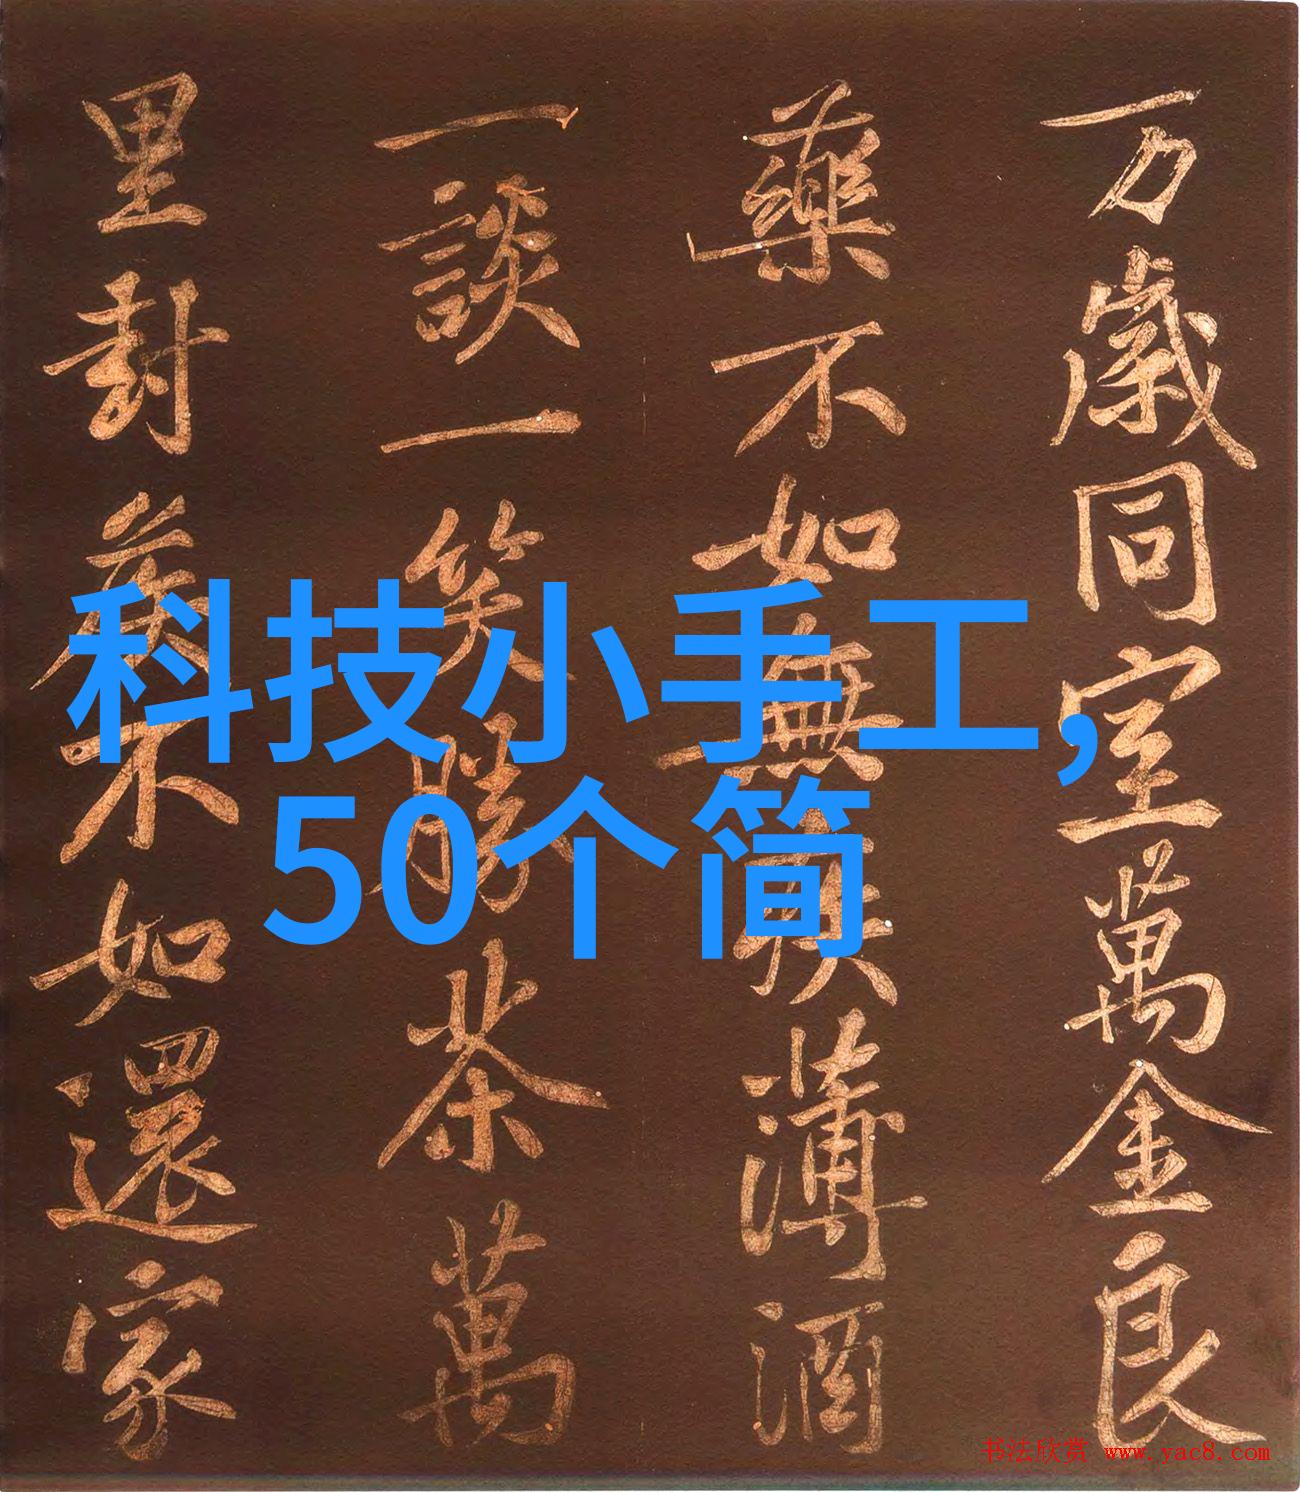 万歲同室萬金良
藥不如無疾薄酒
一談一笑勝茶萬
里封矦不如還家
科技小手工,
50个简
书法欣赏 www.yac8.com